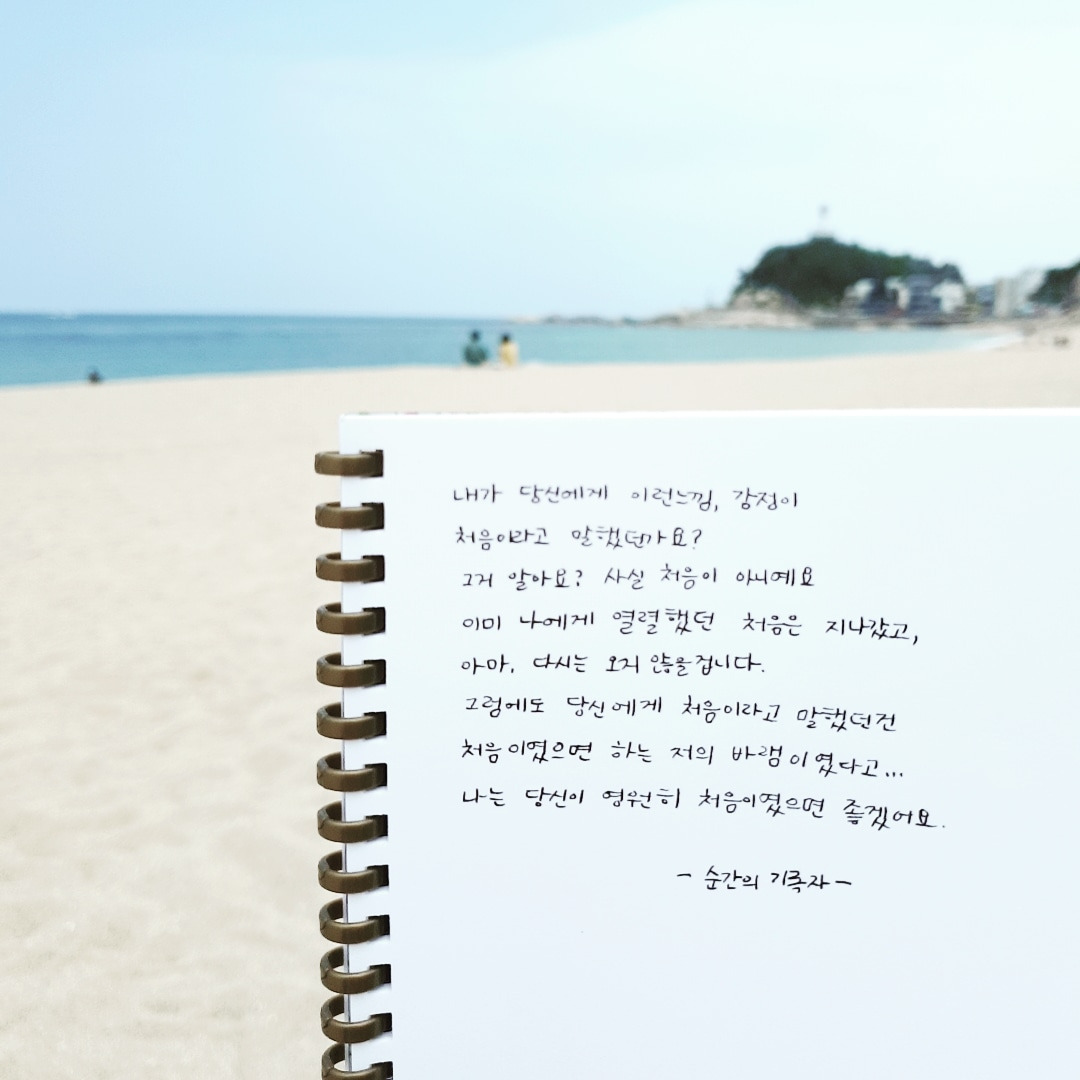 내가 당신에게 이런느낌, 감정이
처음이라고 말했던가요?
그거 알아요? 사실 처음이 아니예요
이미 나에게 열렬했던 처음은 지나갔고,
아마, 다시는 오지 않을겁니다.
그럼에도 당신에게 처음이라고 말했던건
처음이였으면 하는 저의 바램이였다고...
나는 당신이 영원히 처음이였으면 좋겠어요.
- 순간의 기록자 -